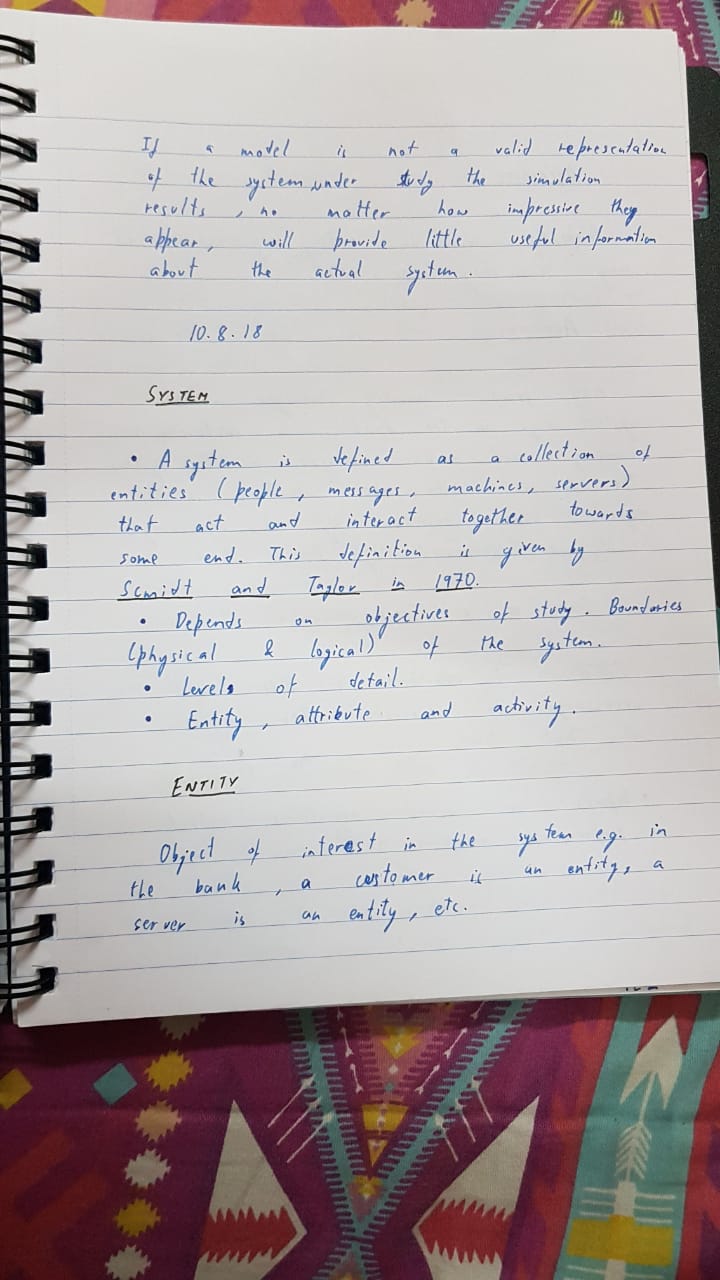 If a model is not a valid representation
of the system under study the simulation
results, no matter how impressive they
appear, will provide little useful information
about the actual system.
10.8.18
SYSTEM
• A system is defined as a collection of
entities (people, messages, machines, servers)
that act and interact together towards
some end. This definition is given by
Scmidt and Taylor in 1970.
• Depends on objectives of study. Boundaries
(physical & logical) of the system.
• Levels of detail.
• Entity, attribute and activity.
ENTITY
Object of interest in the system e.g. in
the bank, a customer is an entity, a
server is an entity, etc.